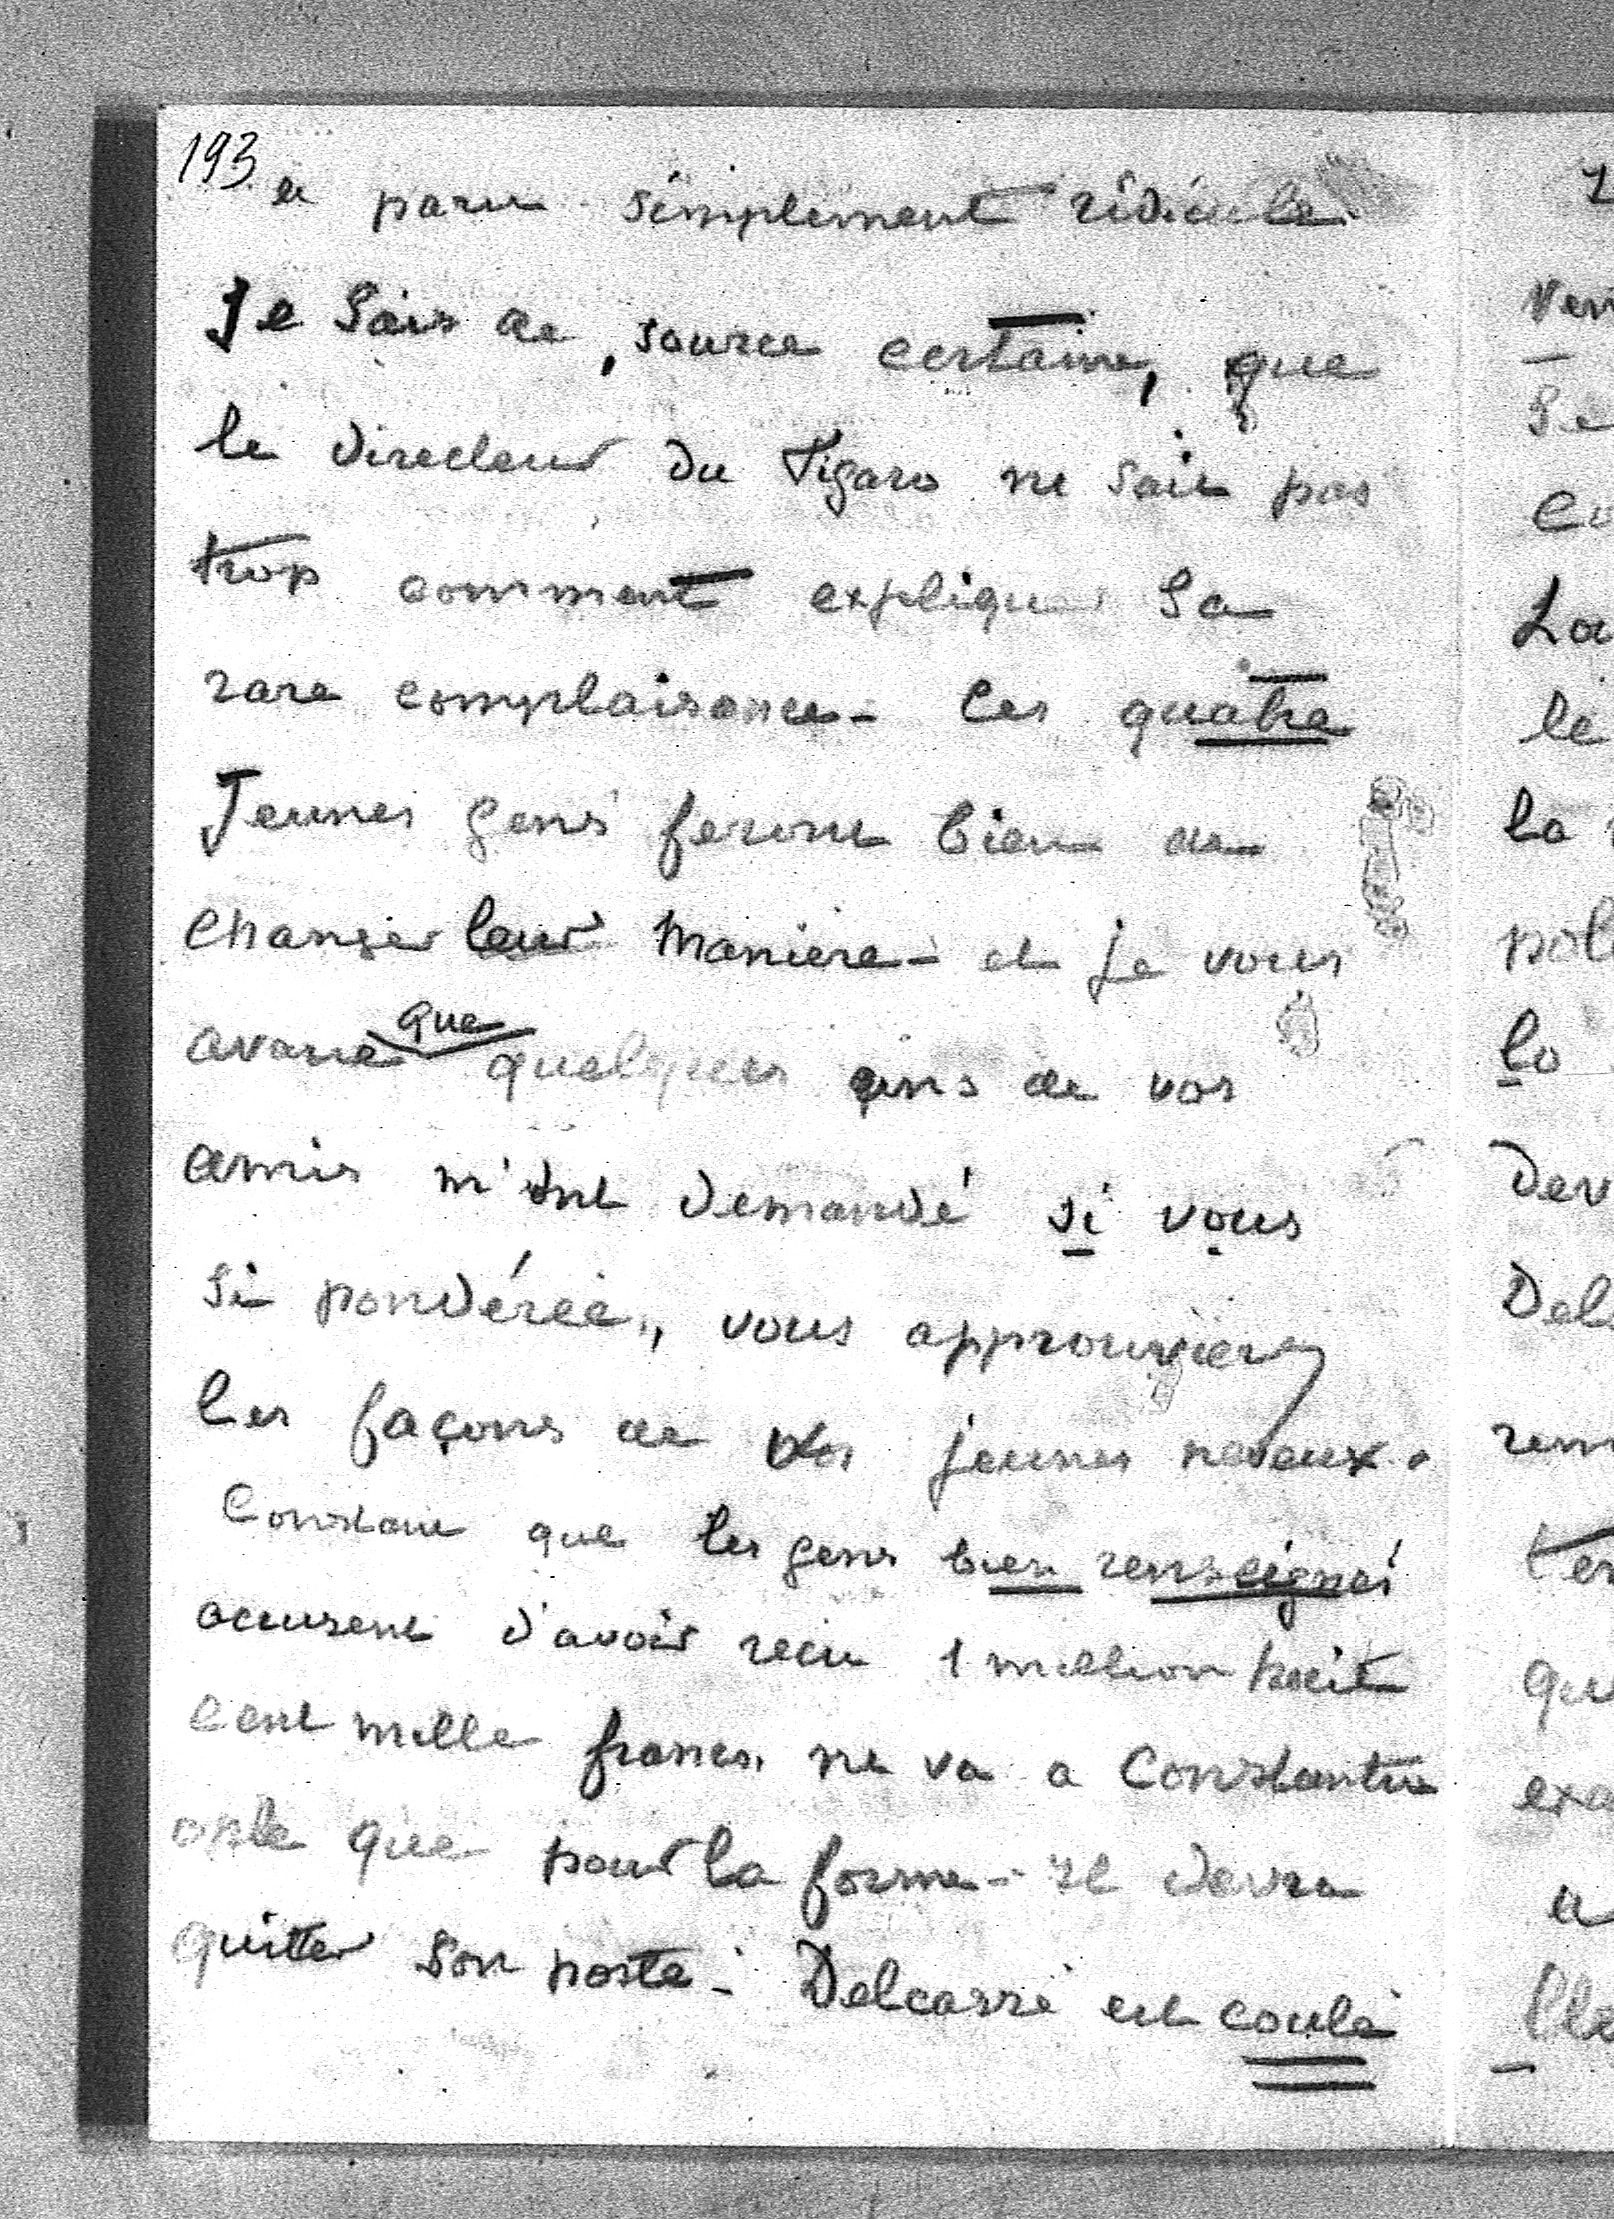 193
a paru simplement ridicule
Je sais de, source certaine, que
le directeur du Figaro ne sait pas
trop comment expliquer sa
rare complaisance - Ces quatre
Jeunes gens feront bien de
changer leur manière - et je vous
avoue que quelques uns de vos
amis m'ont demandé si vous
si pondérée, vous approuviez
les façons de vos jeunes neveux.
Constans que les gens bien renseignés
accusent d'avoir reçu 1 million huit
cent mille francs, ne va a Constantin
ople que pour la forme - il devra
quitter son poste - Delcassé est coulé
Ven
Se
Co
La
le
la
pol
la
Dev
Del
rem
ter
que
exa
a